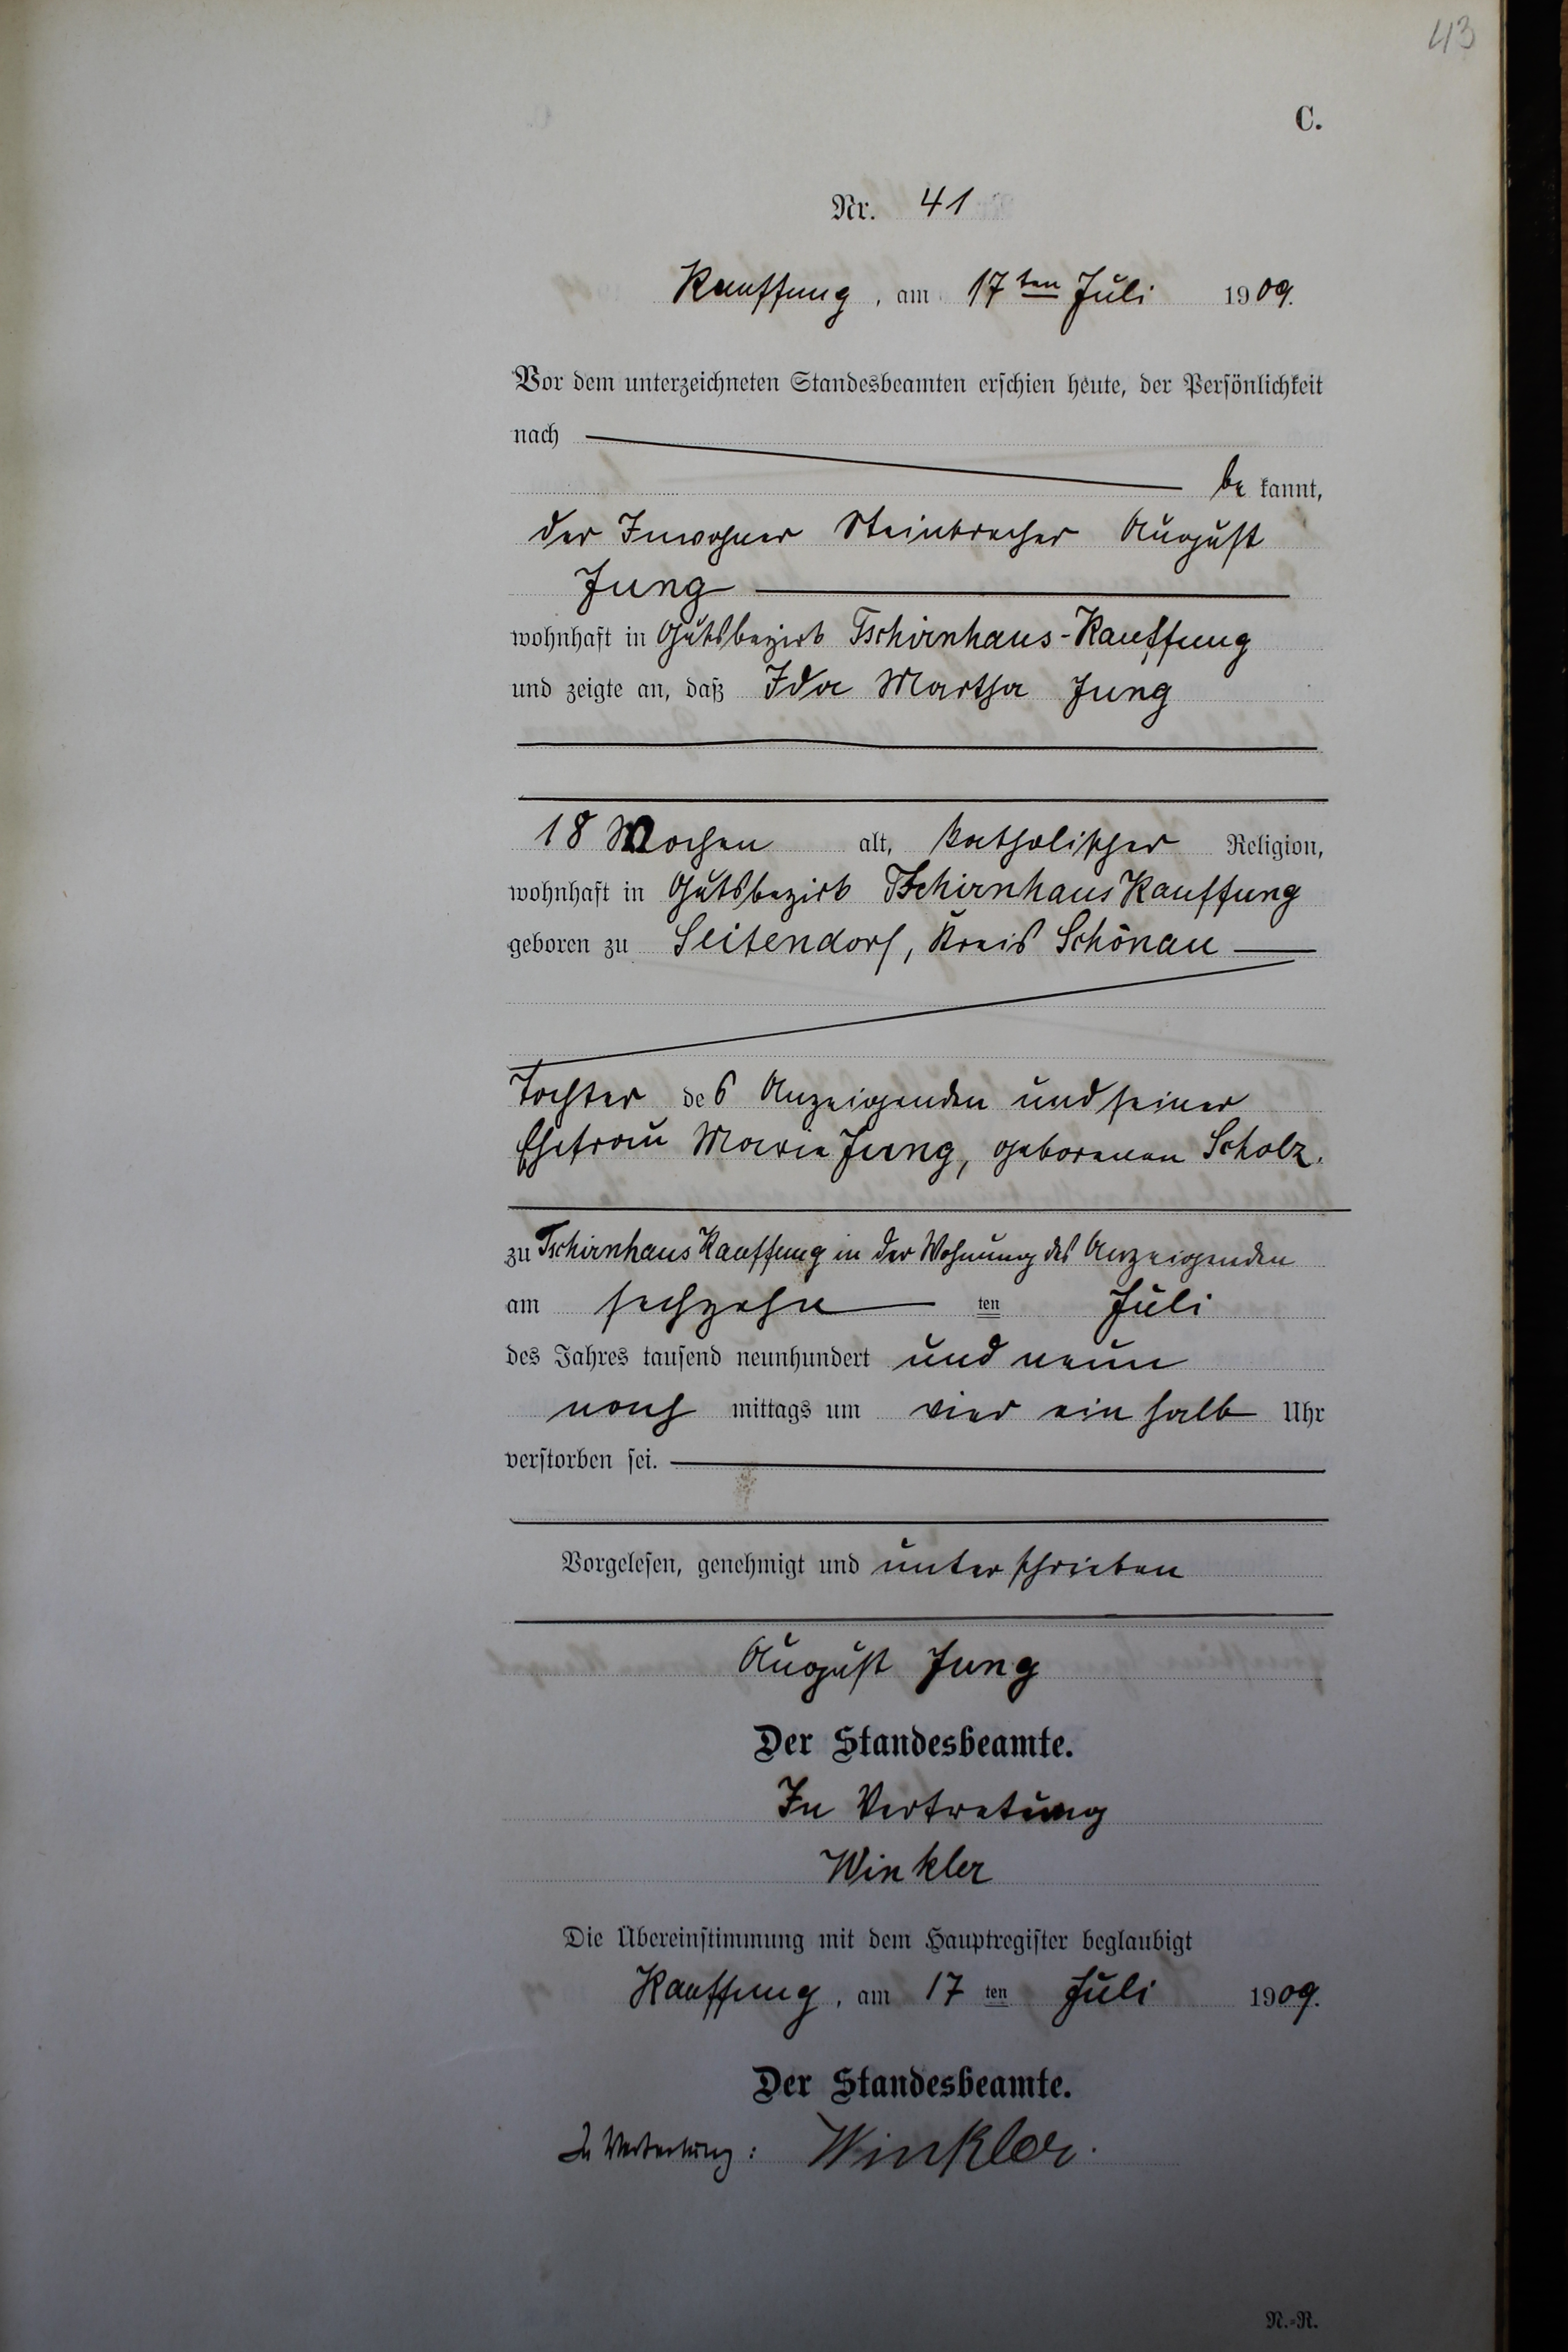 43
C.
Nr. 41
Kauffung, am 17ten Juli 1909.
Vor dem unterzeichneten Standesbeamten erschien heute, der Persönlichkeit
nach
be kannt,
der Inwohner Steinbrecher August
Jung
wohnhaft in Gutsbezirk Tschirnhaus-Kauffung
und zeigte an, daß Ida Martha Jung
18 Wochen alt, katholischer Religion,
wohnhaft in Gutsbezirk Tschirnhaus Kauffung
geboren zu Seitendorf, Kreis Schönau
Tochter des Anzeigenden und seiner
Ehefrau Marie Jung, geborenen Scholz.
zu Tschirnhaus Kauffung in der Wohnung des Anzeigenden
am sechzehn ten Juli
des Jahres tausend neunhundert und neun
nach mittags um vier ein halb Uhr
verstorben sei.
Vorgelesen, genehmigt und unterschrieben
August Jung
Der Standesbeamte.
In Vertretung
Winkler
Die Übereinstimmung mit dem Hauptregister beglaubigt
Kauffung, am 17 ten Juli 1909.
Der Standesbeamte.
In Vertretung: Winkler.
N.-R.